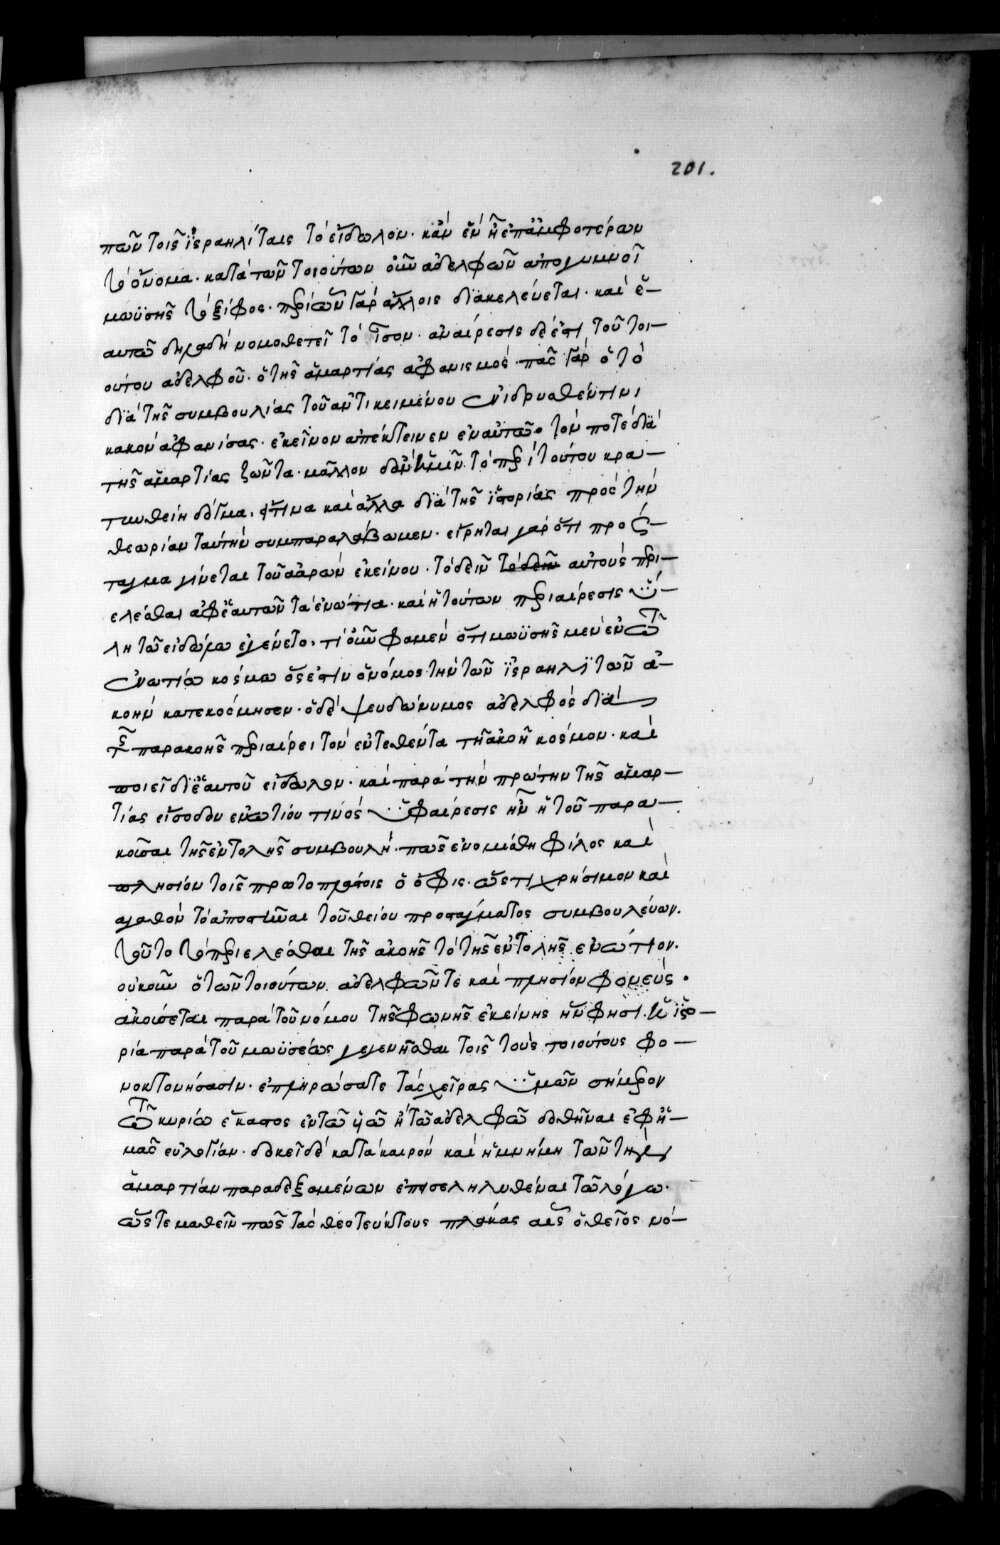 201.
πῶν τοῖς ἰσραηλίταις τὸ εἴδωλον· κἂν ἓν ᾖ ἐπ' ἀμφοτέρων
τὸ ὄνομα· κατὰ τῶν τοιούτων οὖν ἀδελφῶν ἀπογυμνοῖ
μωϋσῆς τὸ ξίφος· περὶ ὧν γὰρ ἄλλοις διακελεύεται· καὶ ἑ–
αυτῶ δηλαδὴ νομοθετεῖ τὸ ἴσον· ἀναίρεσις δέ ἐστι τοῦ τοι–
ούτου ἀδελφοῦ· ὁ τῆς ἁμαρτίας ἀφανισμός· πᾶς γὰρ ὁ τὸ
διὰ τῆς συμβουλίας τοῦ ἀντικειμένου ἐνιδρυθέν τινι
κακὸν ἀφανίσας· ἐκεῖνον ἀπέκτεινεν ἐν αὐτῶ· τὸν ποτὲ διὰ
τῆς ἁμαρτίας ζῶντα· μᾶλλον δ' ἂν ἡμῖν τὸ περὶ τούτου κρα–
τυνθείη δόγμα, εἴ τινα καὶ ἄλλα διὰ τῆς ἱστορίας πρὸς τὴν
θεωρίαν ταύτην συμπαραλάβωμεν· εἴρηται γὰρ ὅτι πρός–
ταγμα γίνεται τοῦ ἀαρὼν ἐκείνου· τὸ δεῖν αὐτοὺς περι–
ελέσθαι ἀφ' ἑαυτῶν τὰ ἐνώτια· καὶ ἡ τούτων περιαίρεσις ὕ–
λη τῶ εἰδώλω ἐγένετο· τί οὖν φαμεν ὅτι μωϋσῆς μὲν ἐν τῶ
ἐνωτίω κόσμω ὅς ἐστιν ὁ νόμος τὴν τῶν ἰσραηλιτῶν ἀ–
κοὴν κατεκόσμησεν· ὁ δὲ ψευδώνυμος ἀδελφὸς διὰ
τῆς παρακοῆς περιαιρεῖ τὸν ἐντεθέντα τῆ ἀκοῆ κόσμον· καὶ
ποιεῖ δι' ἑαυτοῦ εἴδωλον· καὶ παρὰ τὴν πρώτην τῆς ἁμαρ–
τίας εἴσοδον ἐνωτίου τινὸς ὑφαίρεσις ἦν ἡ τοῦ παρα–
κοῦσαι τῆς ἐντολῆς συμβουλή· πῶς ἐνομίσθη φίλος καὶ
πλησίον τοῖς πρωτοπλάστοις ὁ ὄφις· ὥς τι χρήσιμον καὶ
ἀγαθὸν τὸ ἀποστῆναι τοῦ θείου προστάγματος συμβουλεύων.
τοῦτο τὸ περιελέσθαι τῆς ἀκοῆς τὸ τῆς ἐντολῆς ἐνώτιον.
οὐκοῦν ὁ τῶν τοιούτων ἀδελφῶν τε καὶ πλησίον φονεύς·
ἀκούσεται παρὰ τοῦ νόμου τῆς φωνῆς ἐκείνης ἥν φησιν ἡ ἱστο–
ρία παρὰ τοῦ μωϋσέως γεγενῆσθαι τοῖς τοὺς τοιούτους φο–
νοκτονήσασιν· ἐπληρώσατε τὰς χεῖρας ὑμῶν σήμερον
τῶ κυρίω ἕκαστος ἐν τῶ υἱῶ ἢ τῶ ἀδελφῶ δοθῆναι ἐφ' ἡ–
μᾶς εὐλογίαν· δοκεῖ δὲ κατὰ καιρὸν καὶ ἡ μνήμη τῶν τὴν
ἁμαρτίαν παραδεξαμένων ἐπεισεληλυθέναι τῶ λόγω·
ὥστε μαθεῖν πῶς τὰς θεοτεύκτους πλάκας ἃς ὁ θεῖος νό–